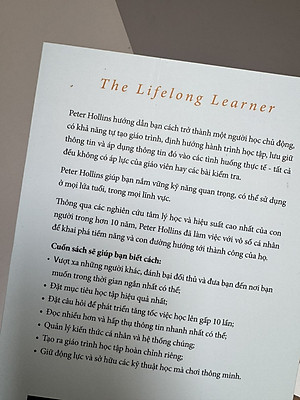 The Lifelong Learner
Peter Hollins hướng dẫn bạn cách trở thành một người học chủ động,
có khả năng tự tạo giáo trình, định hướng hành trình học tập, lưu giữ
thông tin và áp dụng thông tin đó vào các tình huống thực tế - tất cả
đều không có áp lực của giáo viên hay các bài kiểm tra.
Peter Hollins giúp bạn nắm vững kỹ năng quan trọng, có thể sử dụng
ở mọi lứa tuổi, trong mọi lĩnh vực.
Thông qua các nghiên cứu tâm lý học và hiệu suất cao nhất của con
người trong hơn 10 năm, Peter Hollins đã làm việc với vô số cá nhân
để khai phá tiềm năng và con đường hướng tới thành công của họ.
Cuốn sách sẽ giúp bạn biết cách:
• Vượt xa những người khác, đánh bại đối thủ và đưa bạn đến nơi bạn
muốn trong thời gian ngắn nhất có thể;
• Đặt mục tiêu học tập hiệu quả nhất;
• Đặt câu hỏi để phát triển tăng tốc việc học lên gấp 10 lần;
• Đọc nhiều hơn và hấp thụ thông tin nhanh nhất có thể;
• Quản lý kiến thức cá nhân và hệ thống chúng;
• Tạo ra giáo trình học tập hoàn chỉnh riêng;
• Giữ động lực và sở hữu các kỹ thuật học mà chơi thông minh.